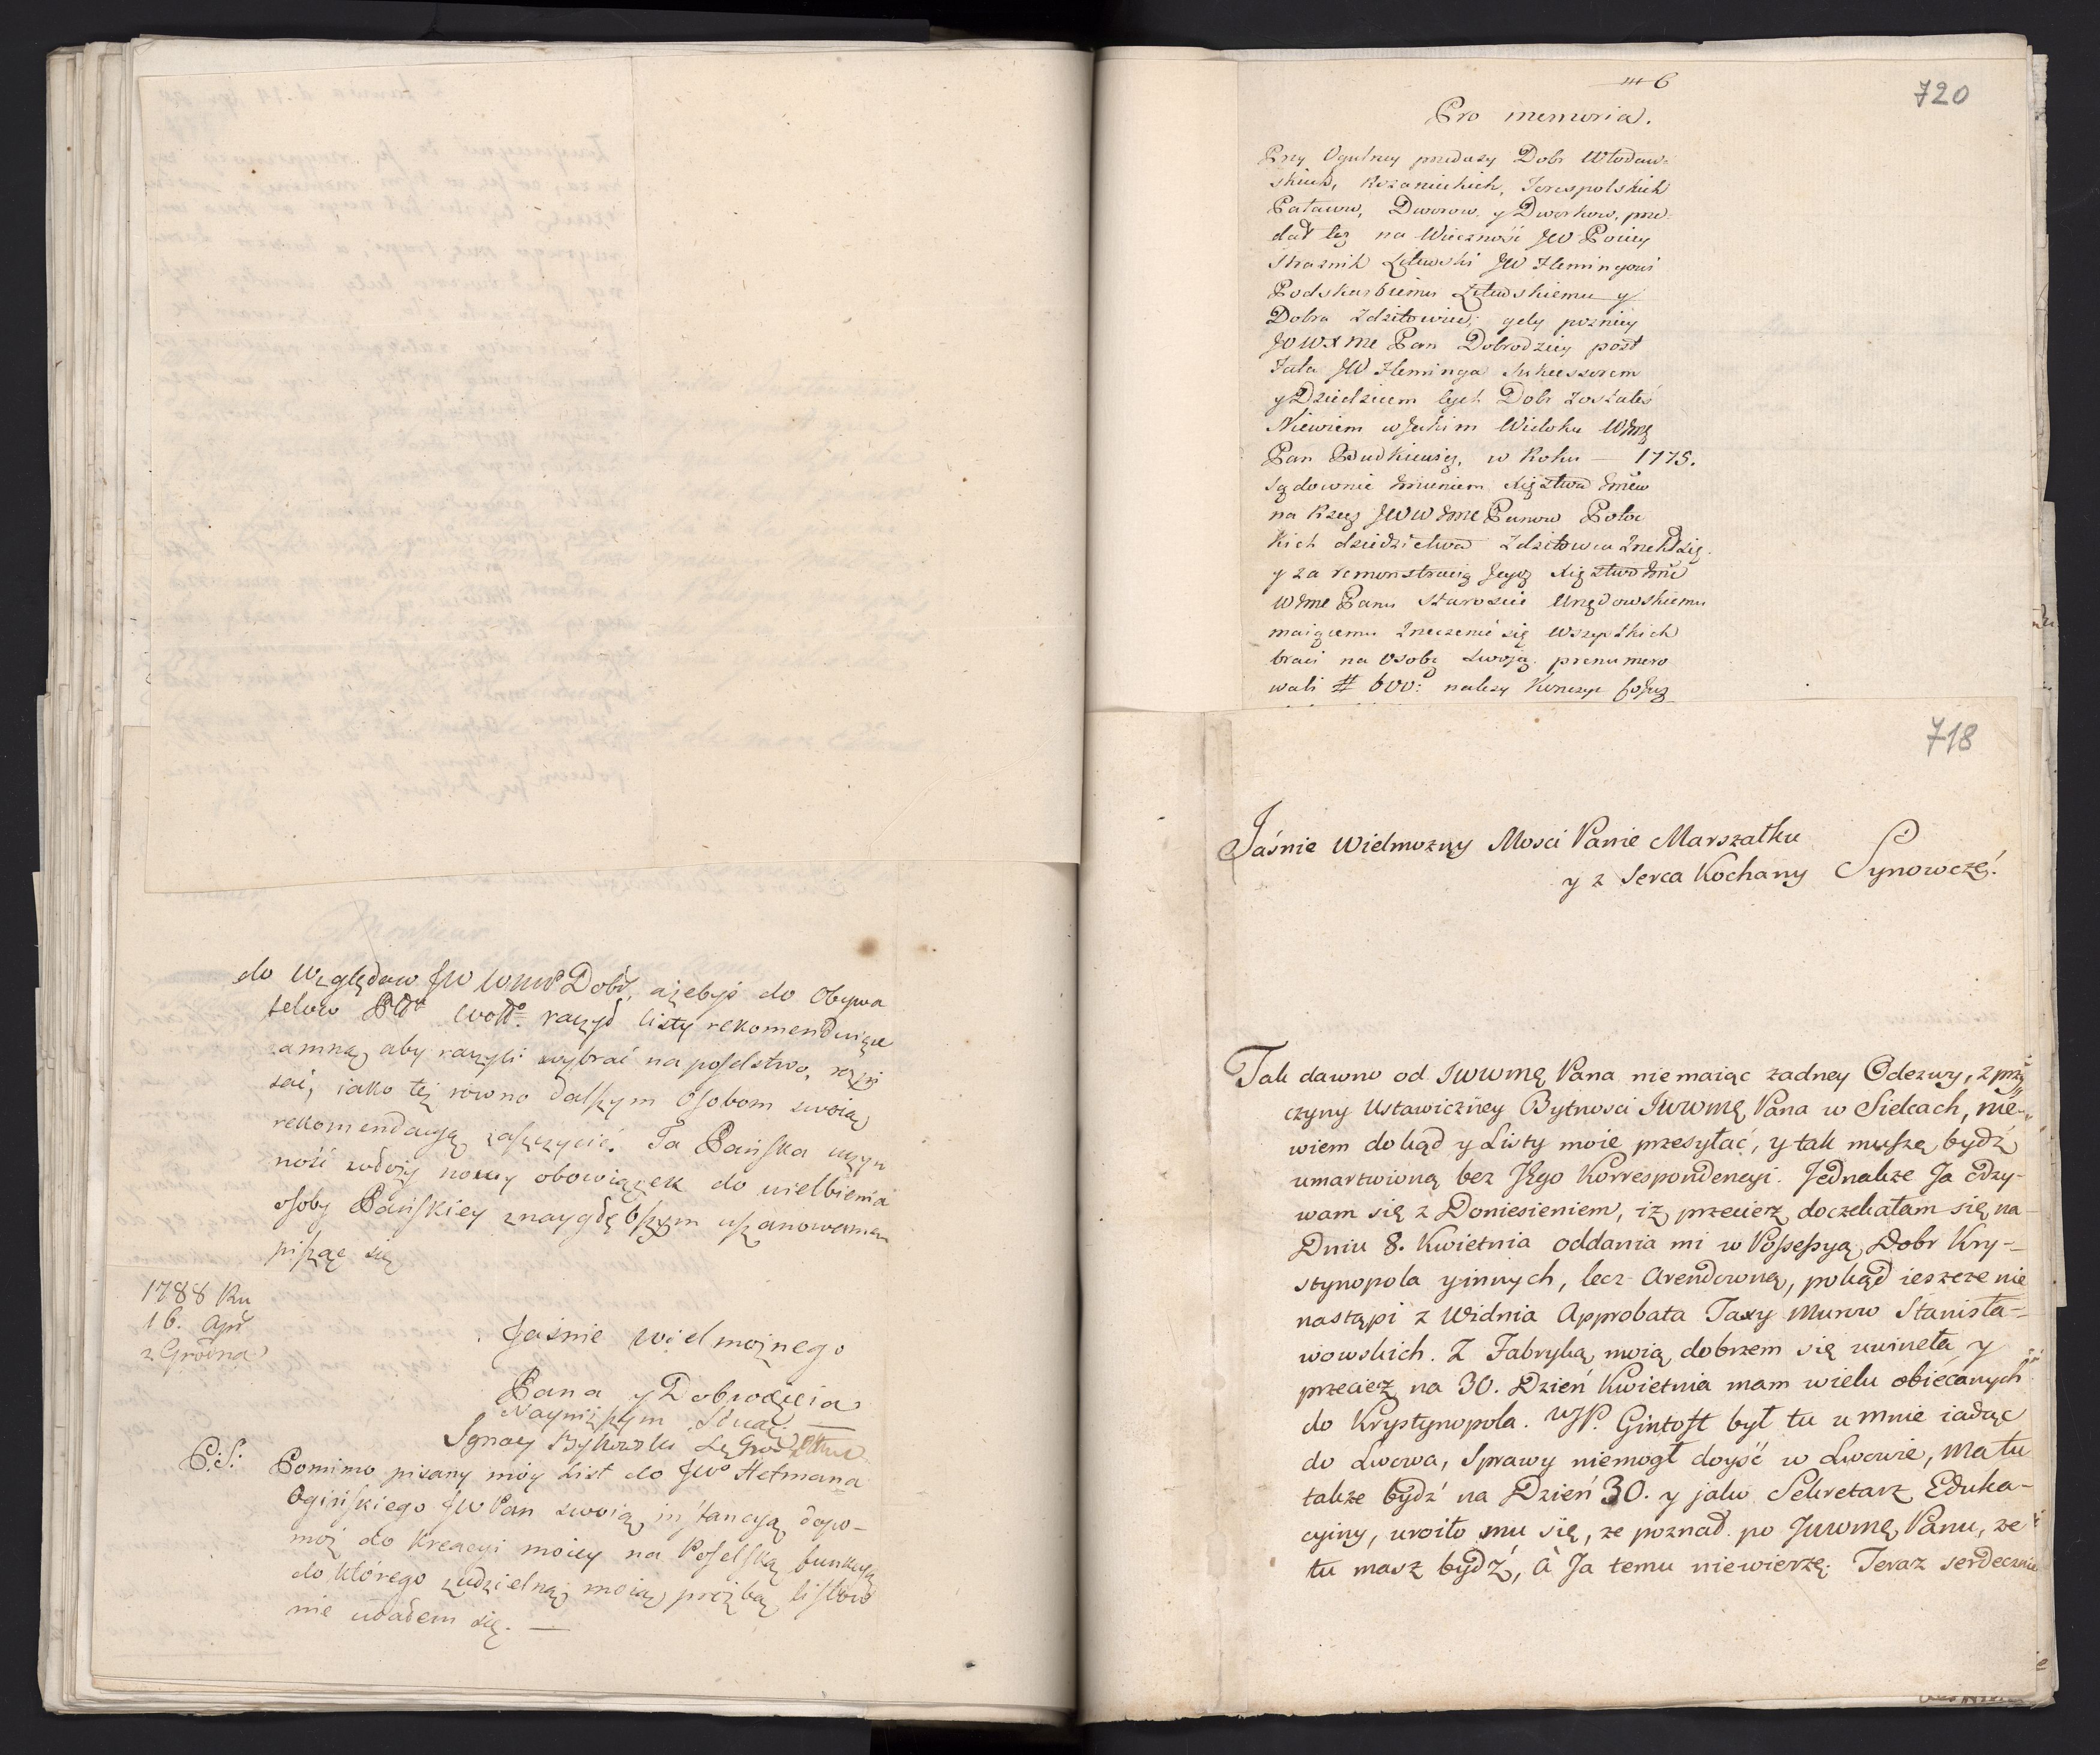 do Względow JW WMP Dobr, ażebyś do Obywa
telow raczył listy rekomenduiące
zamną, aby raczyli wybrać na poselstwo,
sać, iako też rowno dalszym Osobom swoią
rekomendacyą zaszczycić. Ta Pańska uczyn
ność nowy obowiązek do wielbienia
osoby Pańskiey znaygłębszym uszanowaniem
pisząc się
1788 Ru
16. Apr
z Grodna
Jaśnie wielmożnego
Pana y Dobrodzieia
Nayniższym Sługą
Ignacy Bykowski
P:S: Pomimo pisany móy List do JWo Hetmana
Ogińskiego JW Pan swoią instancyą dopo-
moż do Kreacyi moiey na Poselską funkcyą
do którego udzielną moią prożbą listow
nie udałem się. —
m 6
720
Pro memoria.
Przy Ogulney przedaży Dobr Włodaw-
skich, Rożanieckich, Terespolskich
Pałacow, Dworow, y Dworkow, prze-
dał też na Wieczność JW Pociey
Strażnik Litewski JW Flemingowi
Podskarbiemu Litewskiemu y
Dobra Zdzitowiec; gdy pozniey
Pan Dobrodziey post
Fata JW Fleminga Sukcessorem
y Dziedzicem tych Dobr zostałeś
Niewiem w Jakim Widoku
Pan w Roku — 1775.
sądownie Imieniem Xięztwa Imciow
na Rzecz Panow Potoc
kich dziedzictwa Zdzitowca Zrzekł się.
y za remonstracią Jego Xięztwo
Panu Staroscie Urzędowskiemu
maiącemu Zrzeczenie się Wszystkich
braci na Osobę swoją. prenumero
wali # 600: należy
718
Jaśnie Wielmozny Mosci Panie Marszałku
y z Serca Kochany Synowczę!
Tak dawno od JWWMę Pana niemaiąc zadney Odezwy, z przy
czyny Ustawiczney Bytnosci JWWMę Pana w Sielcach, nie-
wiem dokąd y Listy moie przesyłać, y tak muszę bydź
umartwioną bez Jego Korrespondencyi. Jednakze Ja Odzy-
wam się z Doniesieniem, iż przecierz doczekałam się na
Dniu 8. Kwietnia oddania mi w Possessyą Dobr Kry-
stynopola y innych, lecz Arendowną, pokąd ieszcze nie
nastąpi z Widnia Approbata Taxy Murow Stanisła-
wowskich. Z Fabryką moią dobrzem się uwineła y
przecież na 30. Dzień Kwietnia mam wielu obiecanych
do Krystynopola. WJP. Gintoft był tu u mnie iadąc
do Lwowa, Sprawy niemogł doyść w Lwowie, Ma tu
takze bydź na Dzień 30. y jako Sekretarz Eduka-
cyiny, uroiło mu się, ze poznał po JWWMę Panu, ze
tu masz bydź, à Ja temu niewierzę. Teraz serdecznie